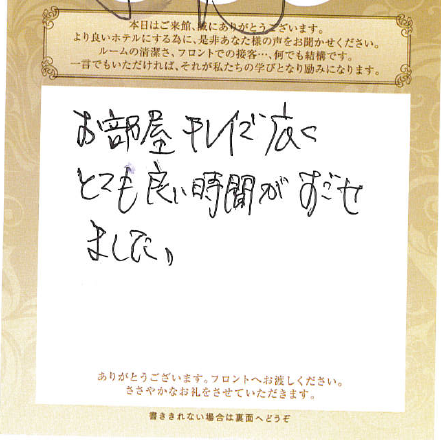 本日はご来館、誠にありがとうございます。
より良いホテルにする為に、是非あなた様の声をお聞かせください。
ルームの清潔さ、フロントでの接客…、何でも結構です。
一言でもいただければ、それが私たちの学びとなり励みになります。
お部屋キレイで広く
とても良い時間がすごせ
ました。
ありがとうございます。フロントへお渡しください。
ささやかなお礼をさせていただきます。
書ききれない場合は裏面へどうぞ